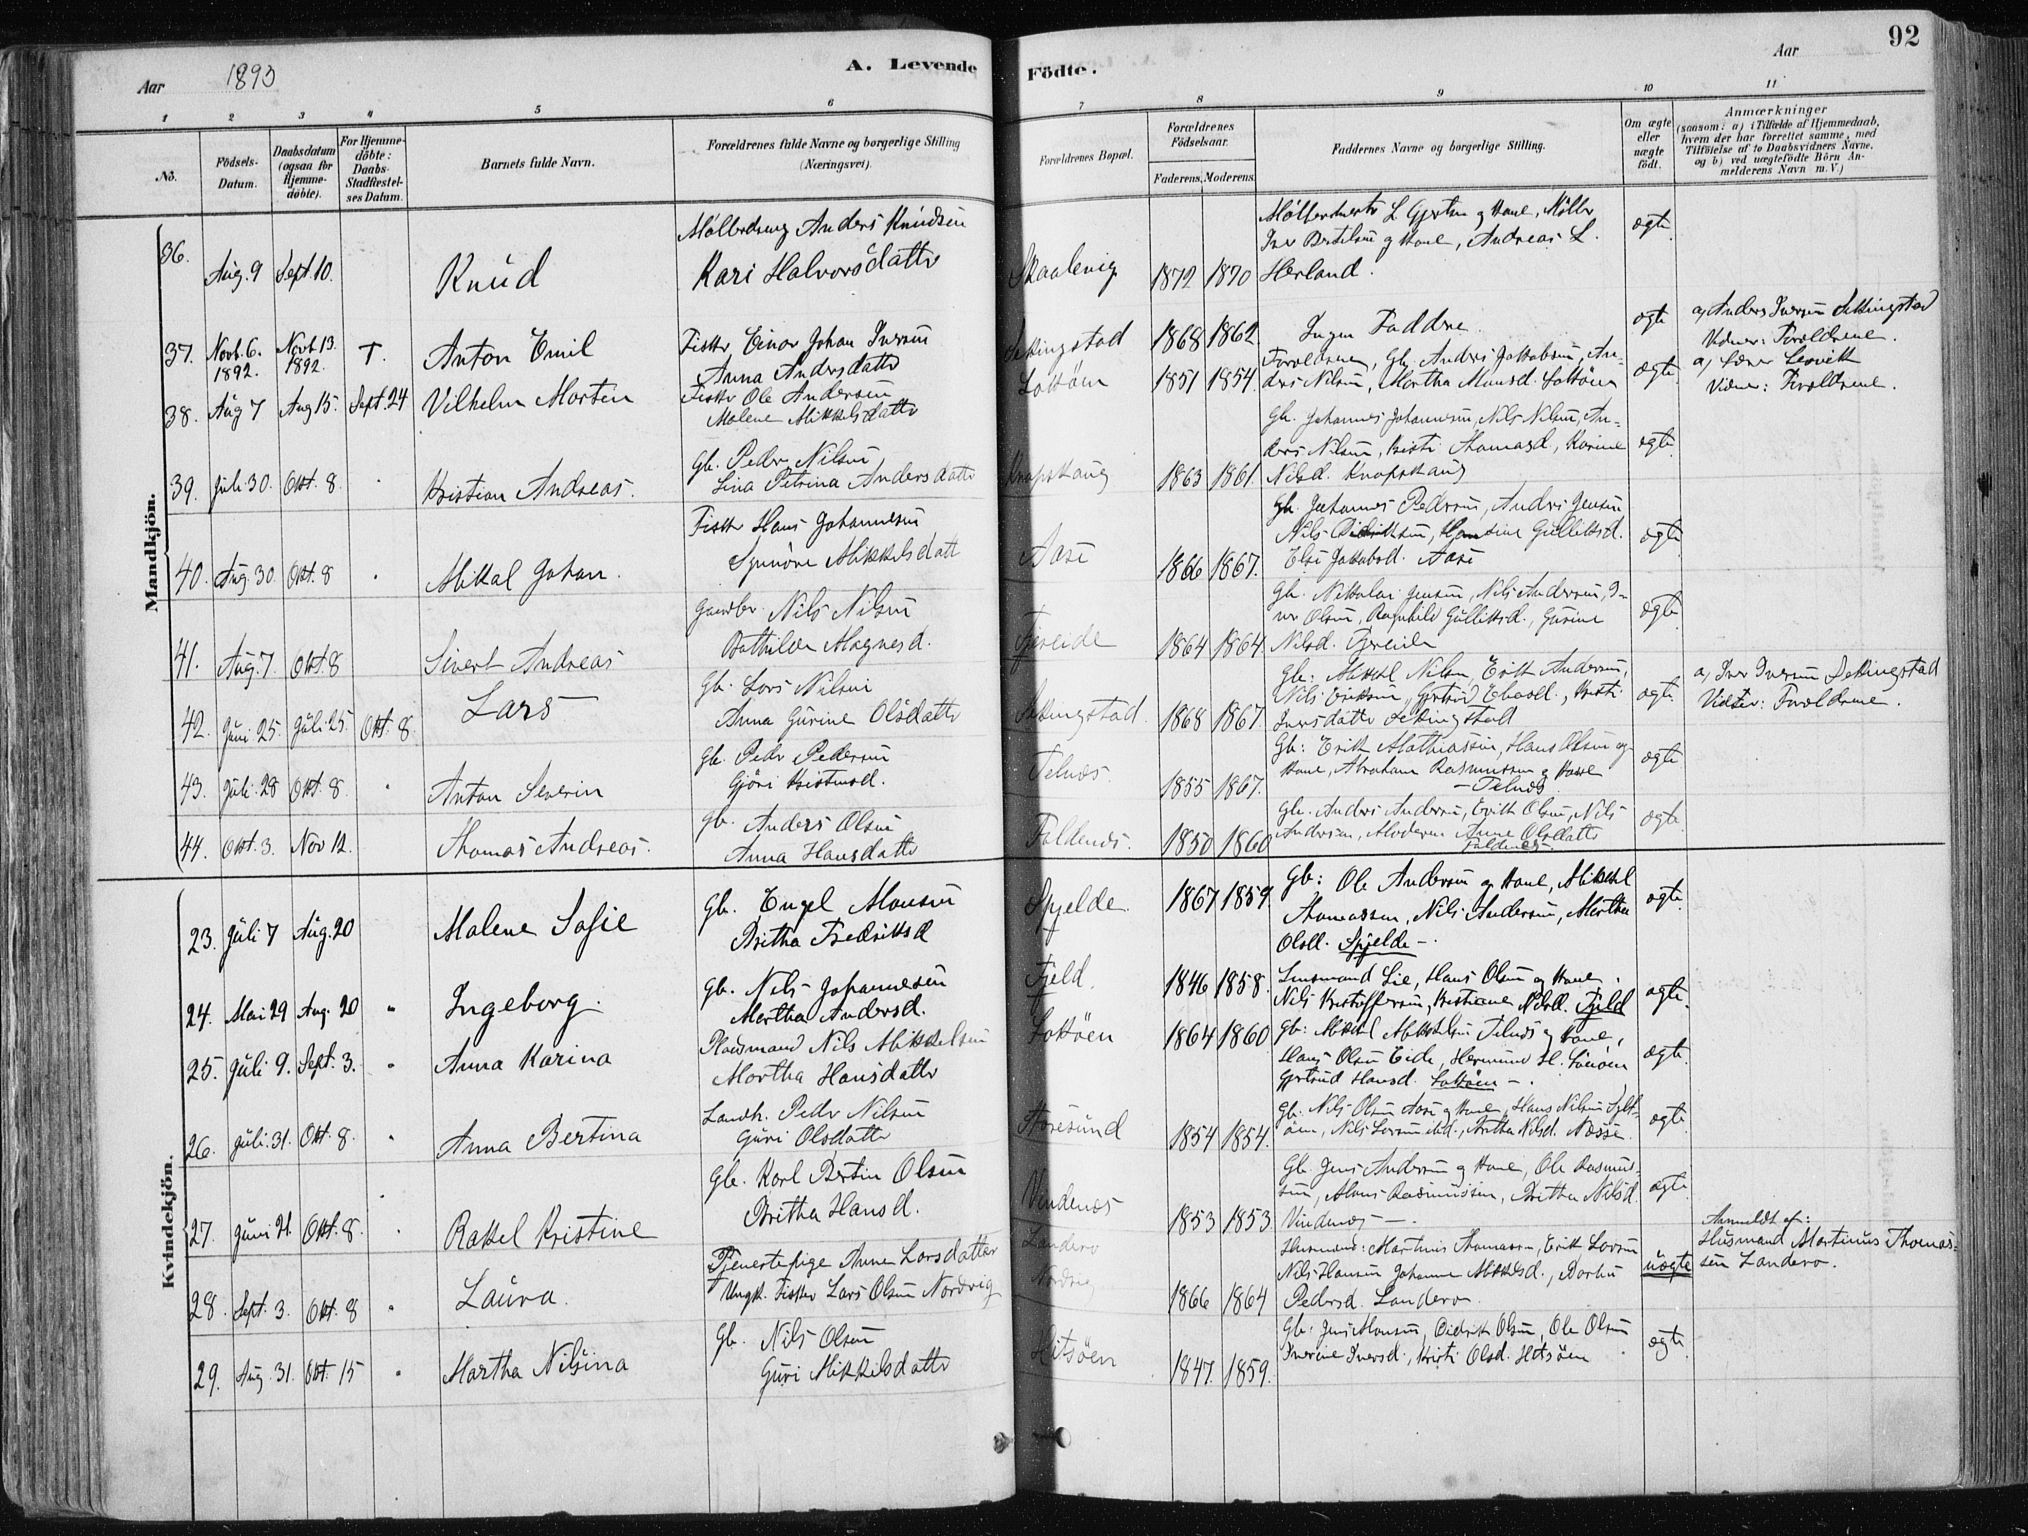 92
Aar 1893
A. Levende Födte.
Aar
1 2 3 4 5 6 7 8 9 10 11
No.
Födsels-Datum.
Daabsdatum (ogsaa for Hjemme-döbte).
For Hjemme-döbte: Daabs-Stadfæstel-ses Datum.
Barnets fulde Navn.
Forældrenes fulde Navne og borgerlige Stilling (Næringsvei).
Forældrenes Bopæl.
Forældrenes Födselsaar.
Faderens. Moderens.
Faddernes Navne og borgerlige Stilling.
Om ægte eller uægte födt.
Anmærkninger (saasom: a) i Tilfælde af Hjemmedaab, hvem der har forrettet samme, med Tilföielse af to Daabsvidners Navne, og b) ved uægtefödte Börn An-melderens Navn m. V.)
Mandkjön.
36. Aug. 9 Sept. 10. Knud
Anders Knudsen
Kari Halvorsdatter
Skaalevig 1872 1870
Iver Bertelsen og Kone, Andreas L.
Herland.
ægte
37. Novb. 6. 1892. Novb. 13. 1892. T. Anton Emil
Fisker Einar Johan Iversen
Anna Andersdatter
Sekkingstad 1868 1862 Ingen Faddere. ægte
a, Anders Iversen Sekkingstad
Vidner: Forældrene.
38. Aug 7 Aug 15. Sept. 24 Vilhelm Morten
Fisker Ole Andersen
Malene Mikkelsdatter
Lokøen 1851 1854.
Forældrene, Gb. Anders Jakobsen, An-
ders Nilsen, Martha Monsd. Lokøen
ægte
Vidner: Forældrene.
39. Juli 30. Okt. 8. Kristian Andreas.
Gb. Peder Nilsen
Lina Petrina Andersdatter
Knapskaug 1863 1861.
Gb. Johannes Johannesen, Nils Nilsen, An-
ders Nilsen, Kristi Thomasd., Karine
Nilsd. Knapskaug
ægte
40. Aug. 30. Okt. 8 Mikal Johan.
Fisker Hans Johannesen
Synnøve Mikkelsdatt
Aase 1866 1867.
Gb. Johannes Pedersen, Anders Jensen
Nils Didriksen, Hansine Gulliksd.
Else Jakobsd. Aase
ægte
41. Aug. 7. Okt. 8 Sivert Andreas
Gaardbr. Nils Nilsen
Bothilde Magnesd.
Tjereide 1864 1864.
Gb. Nikkolai Jensen, Nils Andersen, I-
ver Olsen, Ragnhild Gulliksd., Gurine
Nilsd.
ægte
42. Juni 25. Juli 25. Okt. 8. Lars
Gb. Lars Nilsen
Anna Gurine Olsdatter
Sekkingstad. 1868 1867.
Gb: Mikkel Nilsen, Erik Andersen,
Nils Eriksen, Gjertrud Eliasd., Kristi
Iversdatter Sekkingstad
ægte.
a, Iver Iversen Sekkingstad
Vidner: Forældrene.
43. Juli 28 Okt. 8. Anton Severin
Gb. Peder Pedersen
Gjøri Kristensd.
Telnæs. 1855 1867.
Gb: Erik Mathiassen, Hans Olsen og
Kone, Abraham Rasmussen og Kone
– Telnæs.
ægte
44. Okt. 3. Nov 12. Thomas Andreas.
Gb. Anders Olsen
Anna Hansdatter
Foldenæs. 1850 1860
Gb. Anders Andersen, Erik Olsen, Nils
Andersen, Moderen Anne Olsdatter
Foldenæs.
ægte.
Kvindekjön.
23. Juli 7 Aug. 20 Malene Sofie
Gb. Engel Monsen
Britha Fredriksd
Spjelde. 1867 1859.
Gb: Ole Andersen og Kone, Mikkel
Thomassen, Nils Andersen, Martha
Olsd. Spjelde –.
ægte.
24. Mai 29 Aug. 20 " Ingeborg.
Gb. Nils Johannesen
Martha Andersd.
Fjeld. 1846 1858.
Lensmand Lie, Hans Olsen og Kone,
Nils Kristoffersen, Kristiane Nilsd. Fjeld
ægte.
25. Juli 9. Sept. 3. " Anna Karina
Pladsmand Nils Mikkelsen
Martha Hansdatter
Lokøen 1864 1860
Gb: Mikkel Mikkelsen Telnæs og Kone,
Hans Olsen Eide, Hermund H.
Gjertrud Hansd. Lokøen –.
ægte.
26. Juli. 31. Okt. 8. " Anna Bertina
Landh. Peder Nilsen
Guri Olsdatter
1854 1854.
Gb. Nils Olsen Aase og Kone, Hans Nilsen
øen, Nils Larsen ibd., Britha Nilsd. Næsse.
ægte.
27. Juni 21. Okt. 8. " Rakel Kristine
Gb. Karl Bertin Olsen
Britha Hansd.
Vindenæs 1853 1853.
Gb. Jens Andersen og Kone, Ole Rasmus-
sen, Mons Rasmussen, Britha Nilsd.
Vindenæs –.
ægte
28. Sept. 3. Okt. 8 " Laura.
Tjenestepige Anne Larsdatter
Ungk. Fisker Lars Olsen Nordvig
Landero
Nordvig
1866 1864
Husmand: Martinus Thomassen, Erik Larsen
Nils Hansen Johanne Mikkelsd., Dorthe
Pedersd. Landero
uægte
Anmeldt af:
Husmand Martinus Thomas-
sen Landero.
29. Aug. 31. Okt. 15 " Martha Nilsina
Gb. Nils Olsen
Guri Mikkelsdatter
Hitsøen 1847. 1859.
Gb. Jens Monsen, Didrik Olsen, Ole Olsen
Iverine Iversd., Kristi Olsd. Hitsøen
ægte.